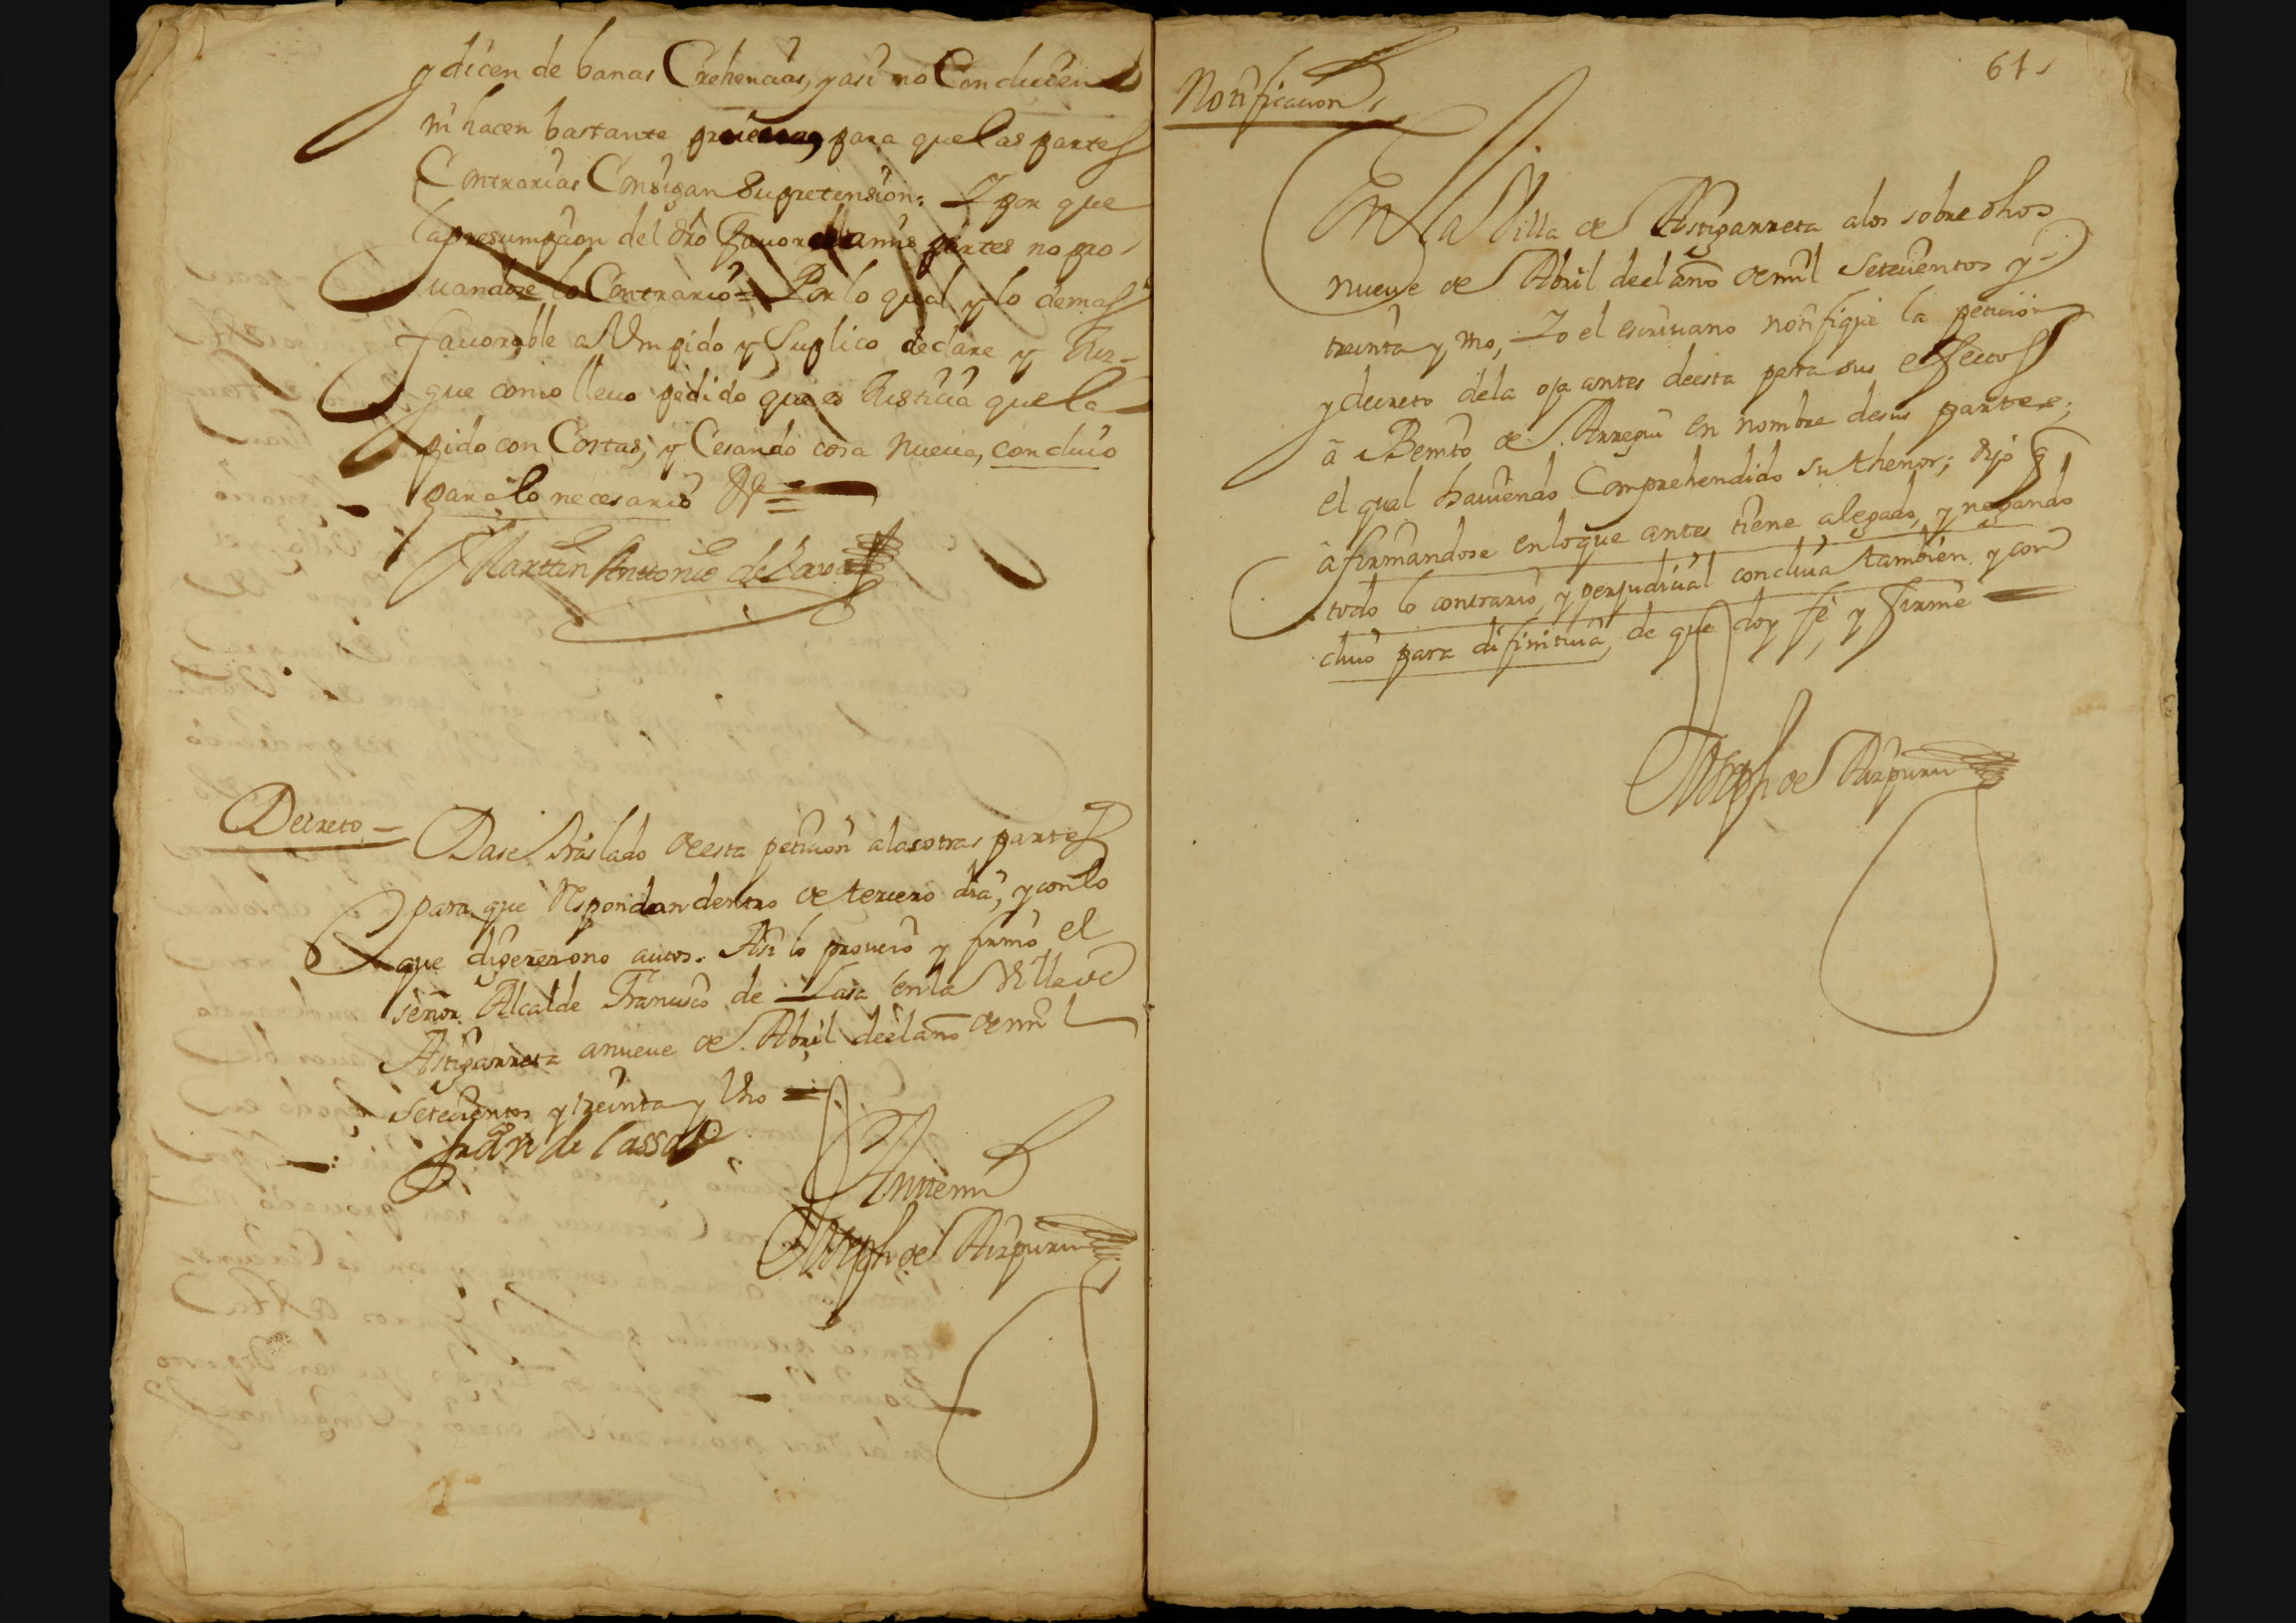 y dicen de banas Crehencias, y asi no Conducen
ni hacen bastante prueua para que las partes
Contrarias Consigan su pretension: Y por que
la presumpcion del dro fauorece a mis partes no pro-
uandose lo Contrario = Por lo qual y lo demas
fauorable a Vm pido y Suplico declare y Juz-
gue como lleuo pedido que es Justicia que la
pido con Costas, y Cesando cosa nueua, concluio
para lo necesario &ª =
Marttin Anttonio de
Decreto =
Dase traslado de esta peticion a las otras partes
para que Respondan dentro de tercero dia, y con lo
que digeren o no autos. Asi lo proueio y firmo el
señor Alcalde Franusco de Lasa en la Villa de
Astigarreta a nueue de Abril de el año de mil
Setecientos y treinta y Vno =
Franco de Lassa
Antte mi
Joseph de Aizpuru
61
Notificacion
En la Villa de Astigarreta a los sobre dhos
nueue de Abril de el año de mil Setecientos y
treinta y vno, Yo el escriuano notifique la peticion
y decreto de la oja antes de esta para sus efectos
â Benito de Arregui en nombre de sus partes;
el qual hauiendo Comprehendido su thenor; dijo q
âfirmandose en lo que antes tiene alegado, y negando
todo lo contrario, y perjudicial concluia tambien y con
cluio para difinitiua, de que doy fe, y firme
Joseph de Aizpuru